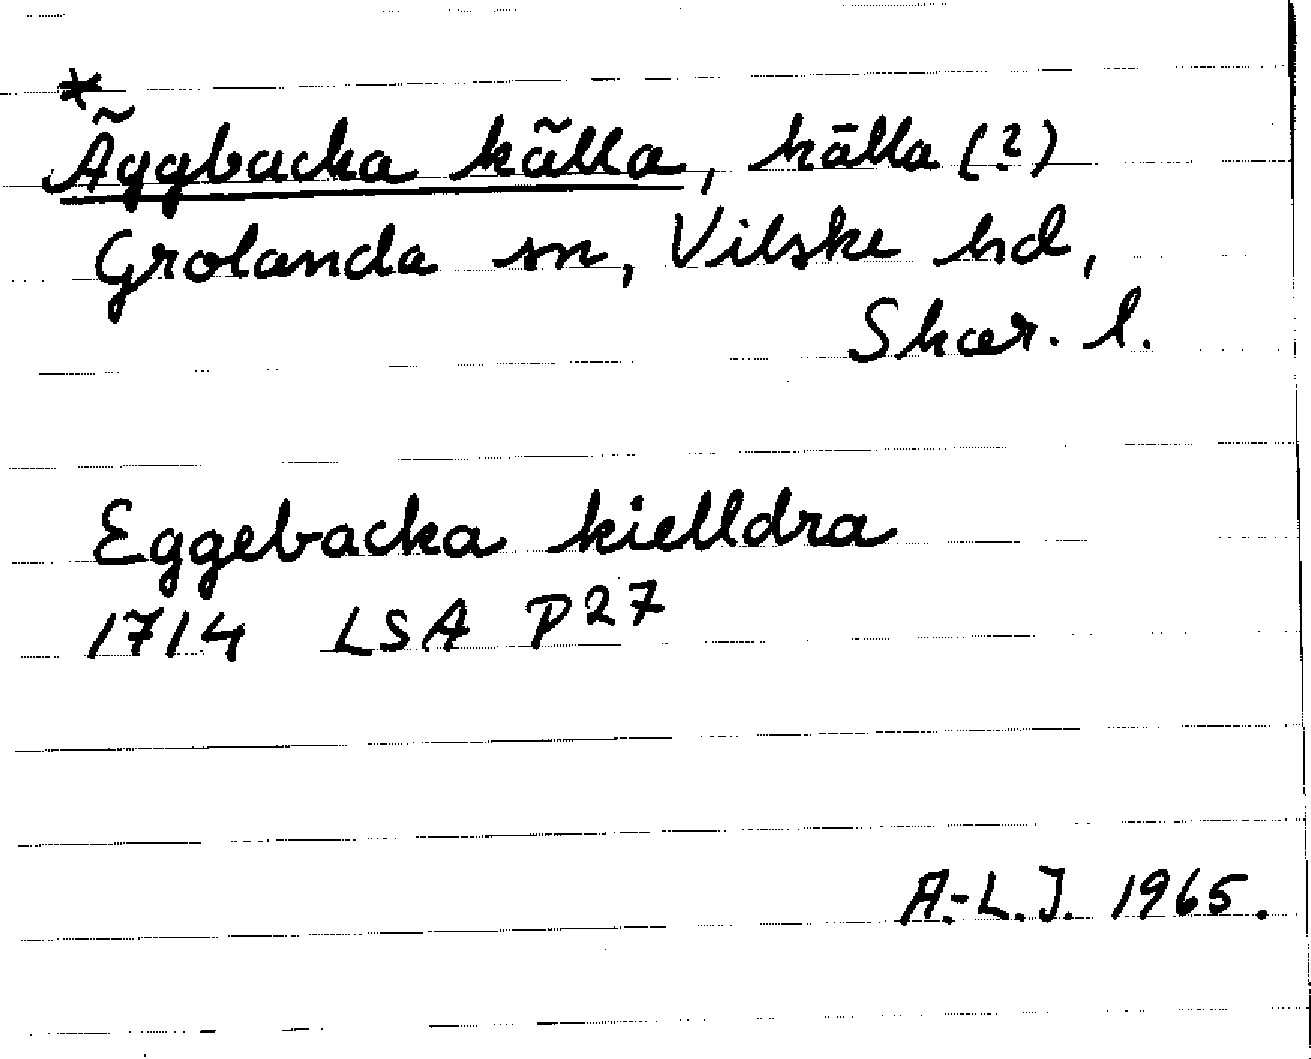 *
Äggbacka källa, källa (?)
Grolanda sn, Vilske hd,
Skar. l.
Eggebacka kielldra
1714 LSA P27
A.-L.J. 1965.